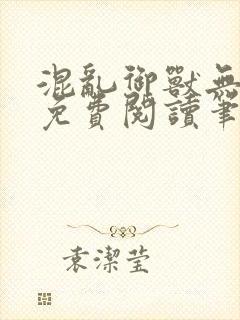 混亂御獸無
免費閱讀筆
袁潔瑩